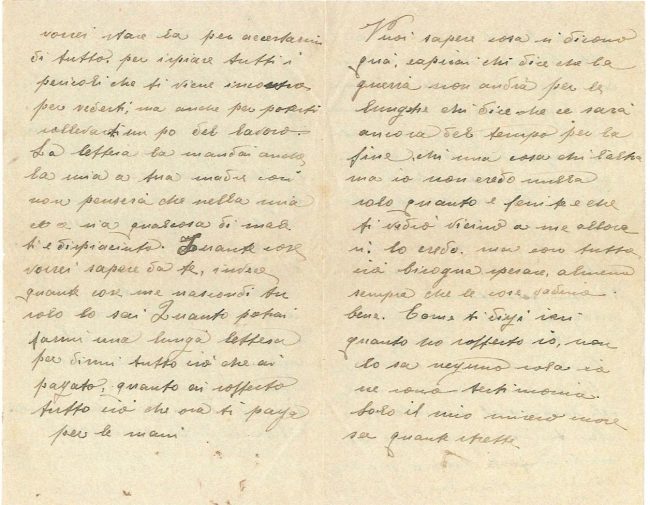 vorrei stare la per accertarmi
di tutto. per ispiare tutti i
pericoli che ti viene incontro
per vederti, ma anche per poterti
sollevarti un po del lavoro.
La lettera la mandai anche
la mia a tua madre così
non penserà che nella mia
ci sia qualcosa di male
ti e dispiaciuto. Quante cose
vorrei sapere da te, invece
quante cose me nascondi tu
solo lo sai Quanto potrai
farmi una lunga lettera
per dirmi tutto ciò che ai
passato, quanto ai sofferto
tutto ciò che ora ti passa
per le mani
Vuoi sapere cosa si dicono
quà, capirai chi dice che la
guerra non andrà per le
lunghe chi dice che ce sarà
ancora del tempo per la
fine, chi una cosa chi l'altra
ma io non credo nulla
solo quanto e finito e che
ti vedrò vicino a me allora
si lo credo. ma con tutto
ciò bisogna sperare, almeno
sempra che le cose vadino
bene. Come ti dissi ieri
quanto ho sofferto io, non
lo sa nessuno sola io
ne sono testimonia.
Solo il mio misero cuore
sa quante strette